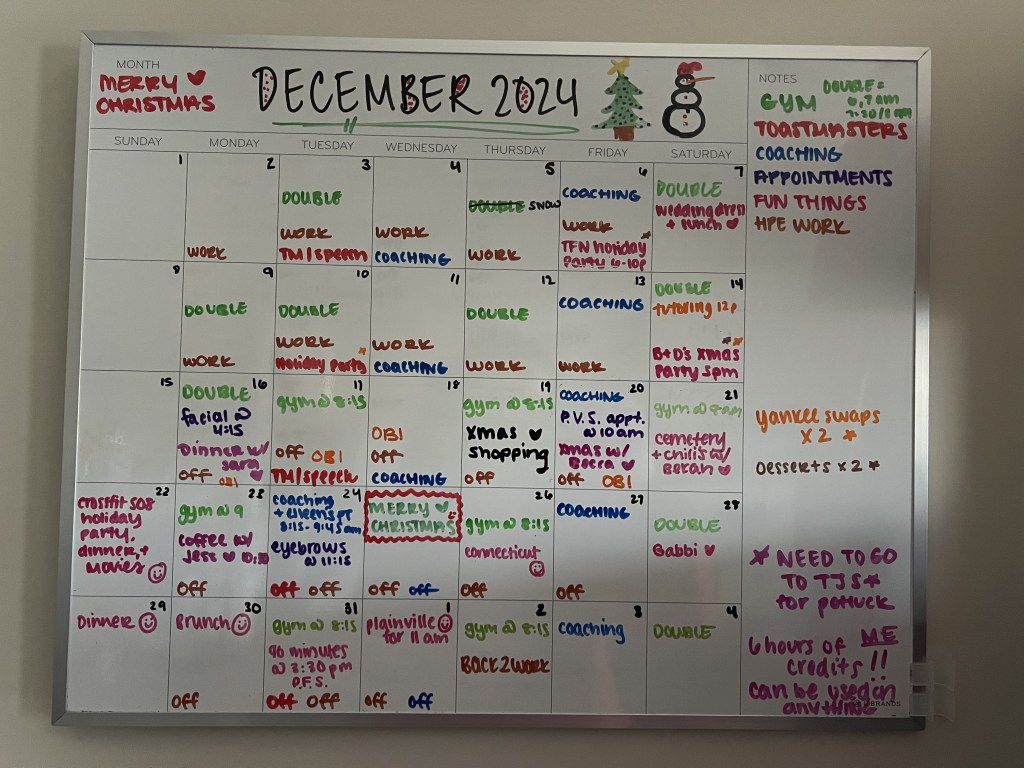 MONTH
MERRY
CHRISTMAS
DECEMBER 2024
SUNDAY MONDAY TUESDAY WEDNESDAY THURSDAY FRIDAY SATURDAY
1
2
WORK
3
DOUBLE
WORK
TM/speech
4
WORK
COACHING
5
DOUBLE SNOW
WORK
6
COACHING
WORK
TFN holiday
Party 6-10p
7
DOUBLE
wedding dress
+ lunch
8
9
DOUBLE
WORK
10
DOUBLE
WORK
Holiday Party
11
WORK
COACHING
12
DOUBLE
WORK
13
COACHING
WORK
14
DOUBLE
tutoring 12p
B+D's xmas
Party 5pm
15
16
DOUBLE
facial @
4:15
Dinner w/
Sara
OFF OBI
17
gym @ 8:15
OFF OBI
TM/speech
18
OBI
OFF
COACHING
19
gym @ 8:15
xmas
shopping
OFF
20
COACHING
P.V.S. appt.
@ 10am
xmas w/
Becca
OFF OBI
21
gym @ 9am
cemetery
+ chilis w/
22
crossfit 508
holiday
party,
dinner, +
movies
23
gym @ 9
coffee w/
Jess
OFF
24
coaching
+ Eileen's PT
8:15-9:45am
eyebrows
@ 11:15
OFF OFF
MERRY
CHRISTMAS
OFF OFF
26
gym @ 8:15
connecticut
OFF
27
COACHING
OFF
28
DOUBLE
Babbi
29
Dinner
30
Brunch
OFF
31
gym @ 8:15
90 minutes
@ 3:30pm
P.F.S.
OFF OFF
1
plainville
for 11am
OFF OFF
2
gym @ 8:15
BACK2WORK
3
coaching
4
DOUBLE
NOTES
GYM DOUBLE =
TOASTMASTERS
COACHING
APPOINTMENTS
FUN THINGS
HPE WORK
yankee swaps
x 2 *
Desserts x 2 *
* NEED TO GO
TO TJS *
for potluck
6 hours of ME
credits !!
can be used on
anything
BRANDS